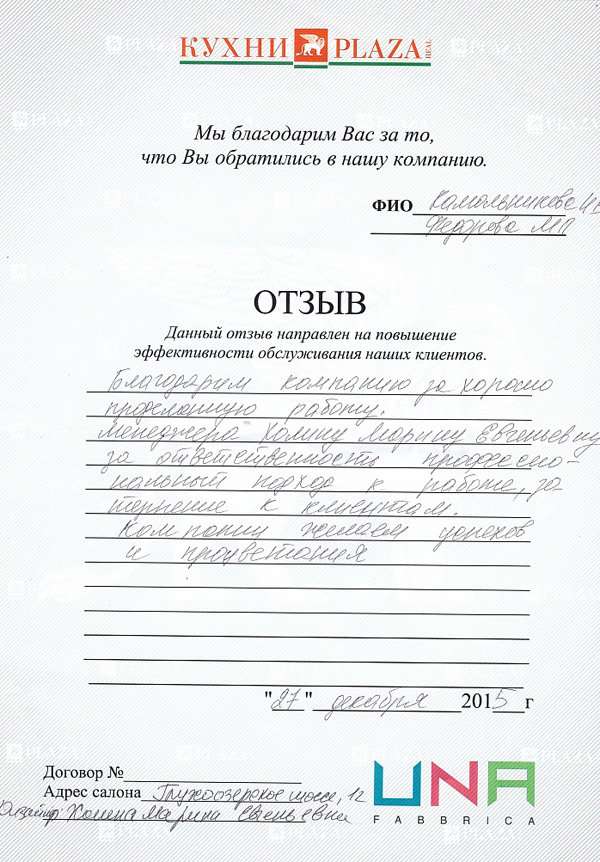 КУХНИ PLAZA REAL
Мы благодарим Вас за то,
что Вы обратились в нашу компанию.
ФИО Камольникова И В
Федорова М П
ОТЗЫВ
Данный отзыв направлен на повышение
эффективности обслуживания наших клиентов.
Благодарим компанию за хорошо
проделанную работу.
Менеджера Холину Марину Евгеньевну
за ответственность професcио-
нальный подход к работе, за
терпение к клиентам.
Компании желаем успехов
и процветания
"27" декабря 2015 г
Договор №
Адрес салона Глухоозерское шоссе, 12
Дизайнер Холина Марина Евгеньевна
UNA
FABBRICA